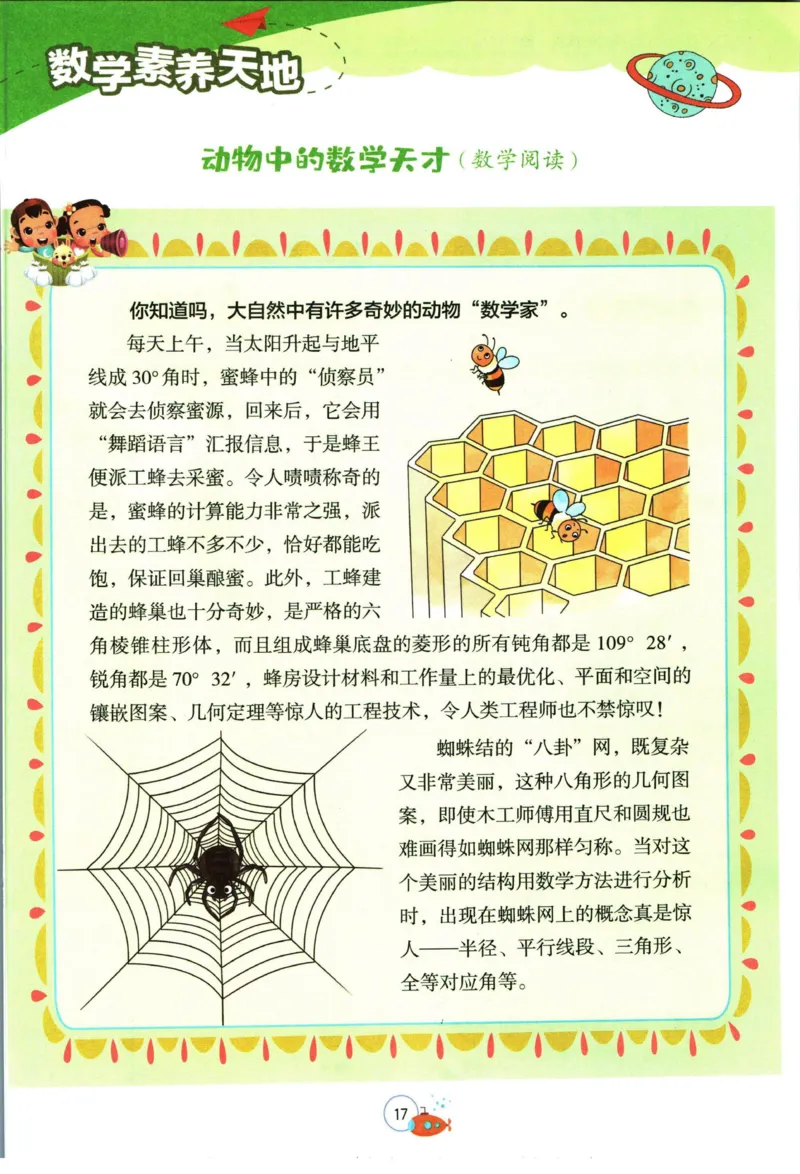 数学素养天地
动物中的数学天才（数学阅读）
你知道吗，大自然中有许多奇妙的动物“数学家”。
每天上午，当太阳升起与地平
线成 30°角时，蜜蜂中的“侦察员”
就会去侦察蜜源，回来后，它会用
“舞蹈语言”汇报信息，于是蜂王
便派工蜂去采蜜。令人啧啧称奇的
是，蜜蜂的计算能力非常之强，派
出去的工蜂不多不少，恰好都能吃
饱，保证回巢酿蜜。此外，工蜂建
造的蜂巢也十分奇妙，是严格的六
角棱锥柱形体，而且组成蜂巢底盘的菱形的所有钝角都是 109° 28′，
锐角都是 70° 32′，蜂房设计材料和工作量上的最优化、平面和空间的
镶嵌图案、几何定理等惊人的工程技术，令人类工程师也不禁惊叹！
蜘蛛结的“八卦”网，既复杂
又非常美丽，这种八角形的几何图
案，即使木工师傅用直尺和圆规也
难画得如蜘蛛网那样匀称。当对这
个美丽的结构用数学方法进行分析
时，出现在蜘蛛网上的概念真是惊
人——半径、平行线段、三角形、
全等对应角等。
17